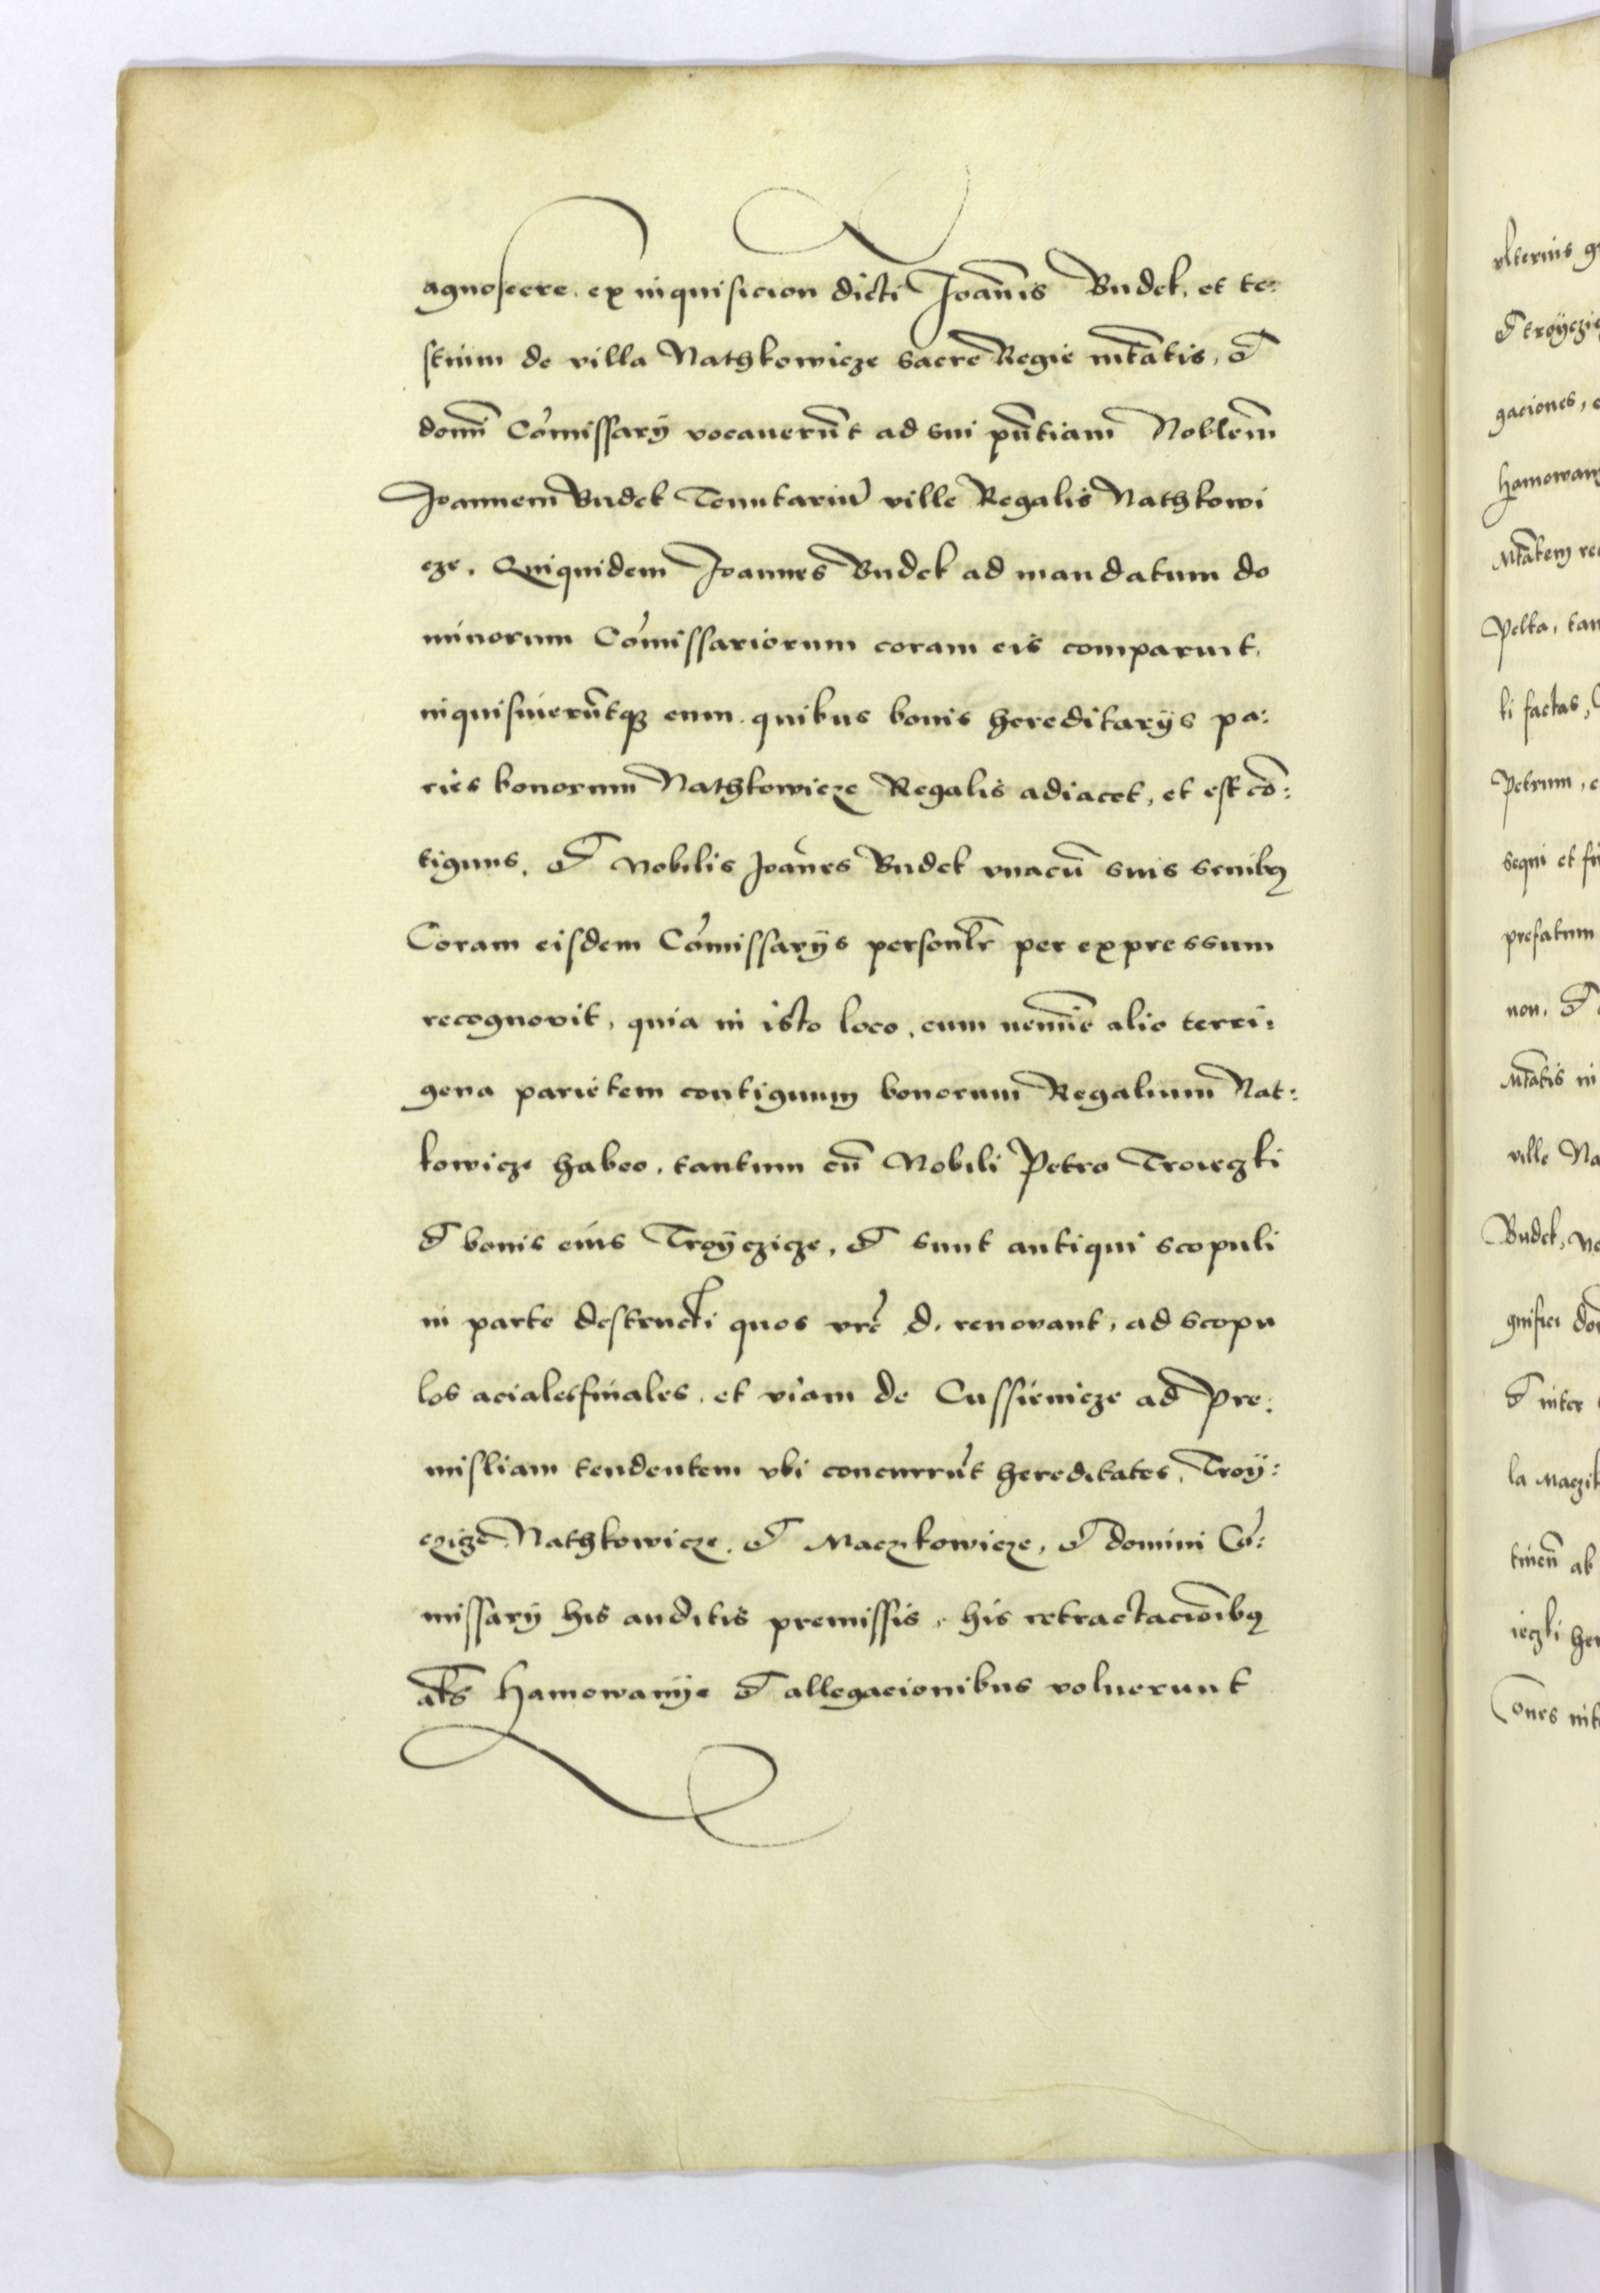 agnoscere. ex inquisicion dicti Joañis Budek, et te:
stium de villa Nathkowicze Sacre Regie mtãtis, et
domĩ Cõmissarÿ vocauerũt ad sui pñtiam Noblẽm
Joannem Budek Tenutariũ ville Regalis Nathkowi
cze. Quiquidem Joannes Budek ad mandatum do
minorum Cõmissariorum coram eis comparuit.
inquisiuerũtqȝ eum. quibus bonis hereditarÿs pa:
ries bonorum Nathkowicze Regalis adiacet, et est cõ:
tiguus. et Nobilis Joañes Budek vnacũ suis senibȝ
Coram eisdem Cõmissarÿs persontr̃ per expressum
recognovit, quia in isto loco. cum nemĩe alio terri:
gena parietem contiguum bonorum Regalium Nat:
kowicze habeo. tantum cũ Nobili Petro Troieczki
et bonis eius Troÿczicze, et sunt antiqui scopuli
in parte destructi quos vrẽ d. renovant, ad scopu
los acialesfinales. et viam de Cussienicze ad Pre:
misliam tendentem vbi concurrũt hereditates. Troÿ:
czicze Nathkowicze. et Maczkowicze, et domini Cõ:
missarÿ his auditis premissis, his retractaciõibȝ
als̃ Hamowanÿe et allegacionibus voluerunt
vlterius
et troÿczic
gaciones,
hamowan
Mtãtem
Pelka, tan
ki factas,
Petrum,
sequi et
prefatum
non. et
Mtãtis in
ville Na
Budek,
gnifici
et inter
la Maczik
tineñ ab
ieczki her